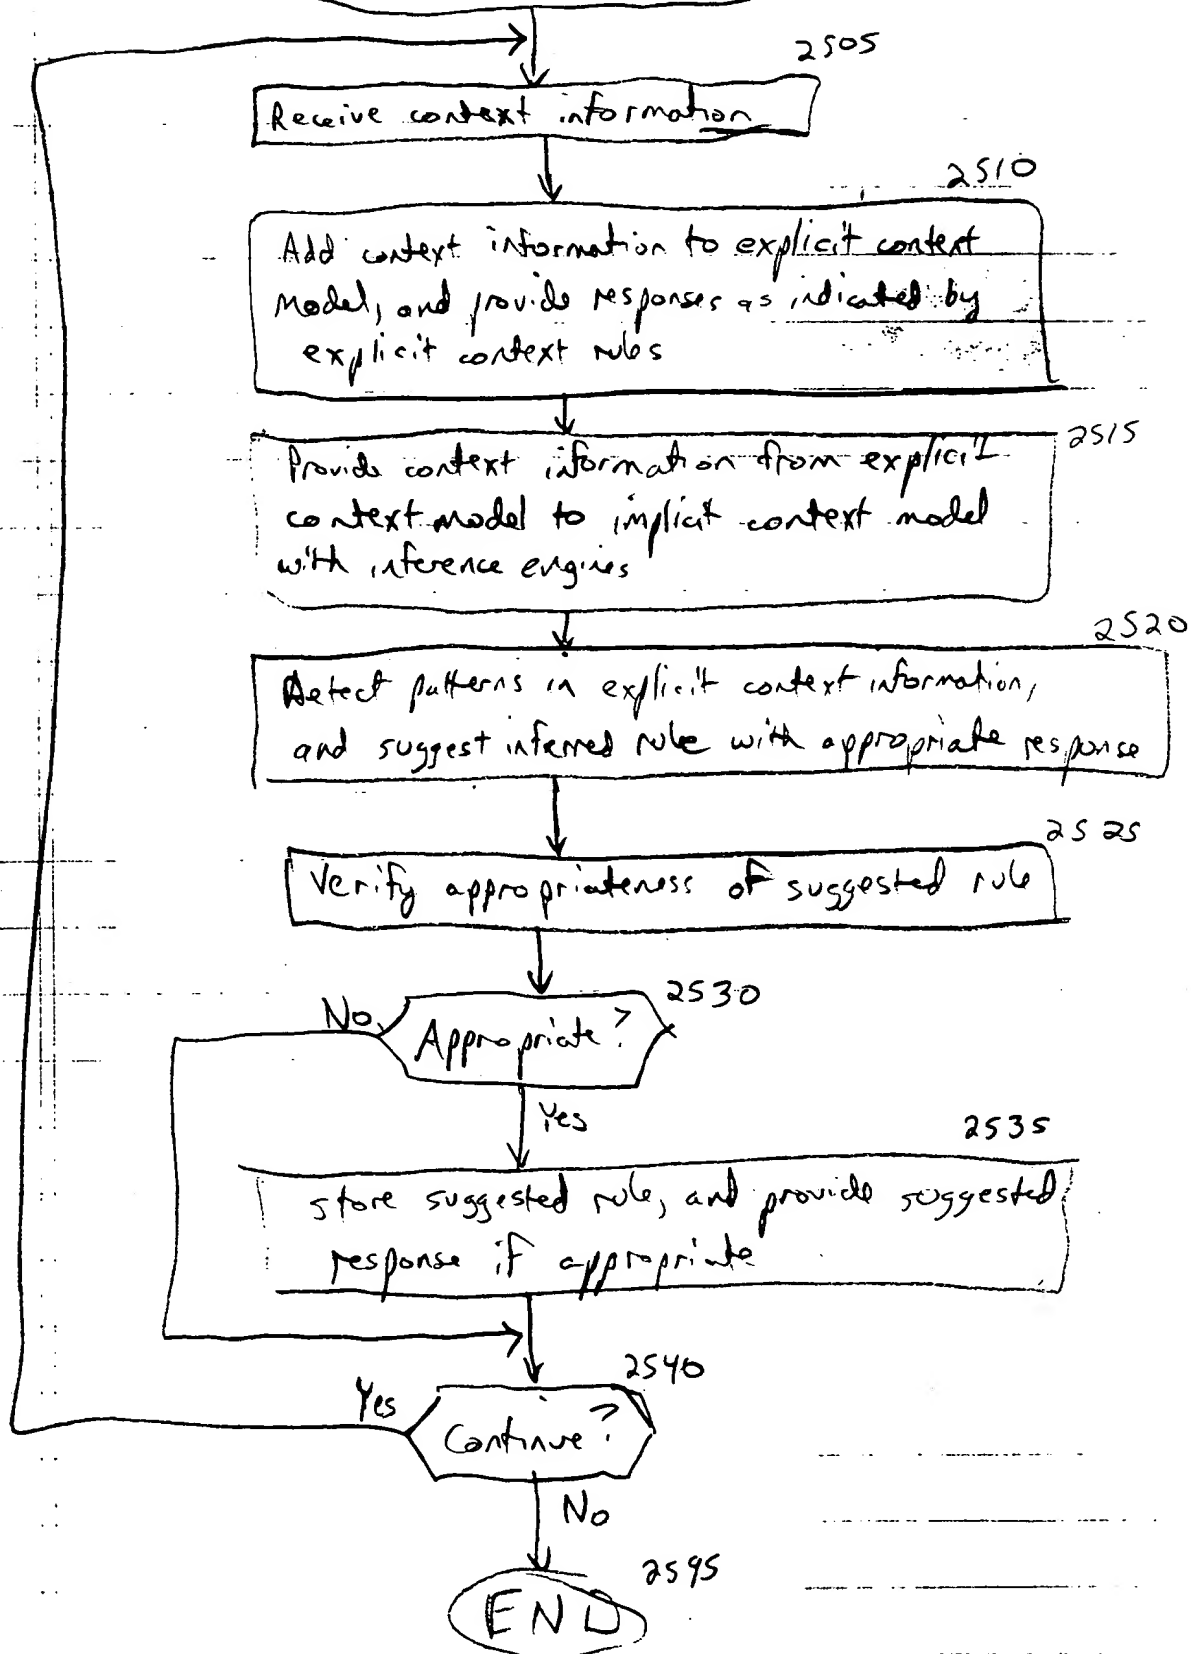 2505
Receive context information
2510
Add context information to explicit context
model, and provide responses as indicated by
explicit context rules
2515
Provide context information from explicit
context model to implicit context model
with inference engines
2520
Detect patterns in explicit context information,
and suggest inferred rule with appropriate response
2525
Verify appropriateness of suggested rule
2530
No
Appropriate?
Yes
2535
store suggested rule, and provide suggested
response if appropriate
2540
Yes
Continue?
No
2595
END